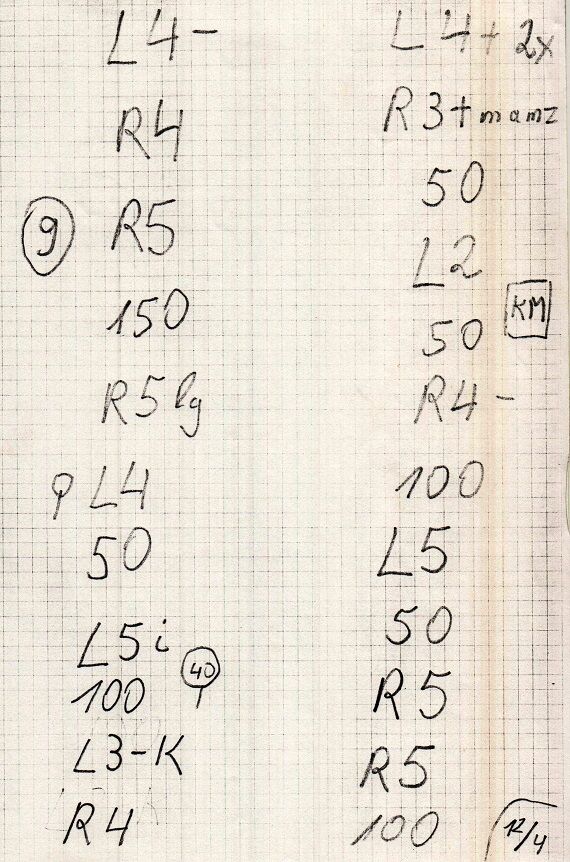 L4-
R4
9 R5
150
R5 lg
L4
50
L5i
100 40
L3-K
R4
L4+ 2x
R3+
50
L2
KM
50
R4-
100
L5
50
R5
R5
100 12/4